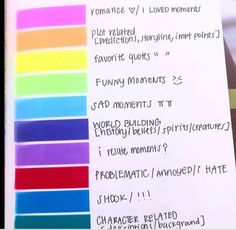 romance ♡/ I LOVED moments
PLOT RELATED
[PREDICTIONS, STORYLINE, impt POINTS]
FAVORITE QUOTES " "
FUNNY MOMENTS
SAD MOMENTS ㅠㅠ
WORLD BUILDING
[HISTORY/beliefs/spirits/creatures]
i RELATE MOMENTS?
PROBLEMATIC / ANNOYED/i HATE
SHOOK / !!!
CHARACTER RELATED
[descriptions/background]